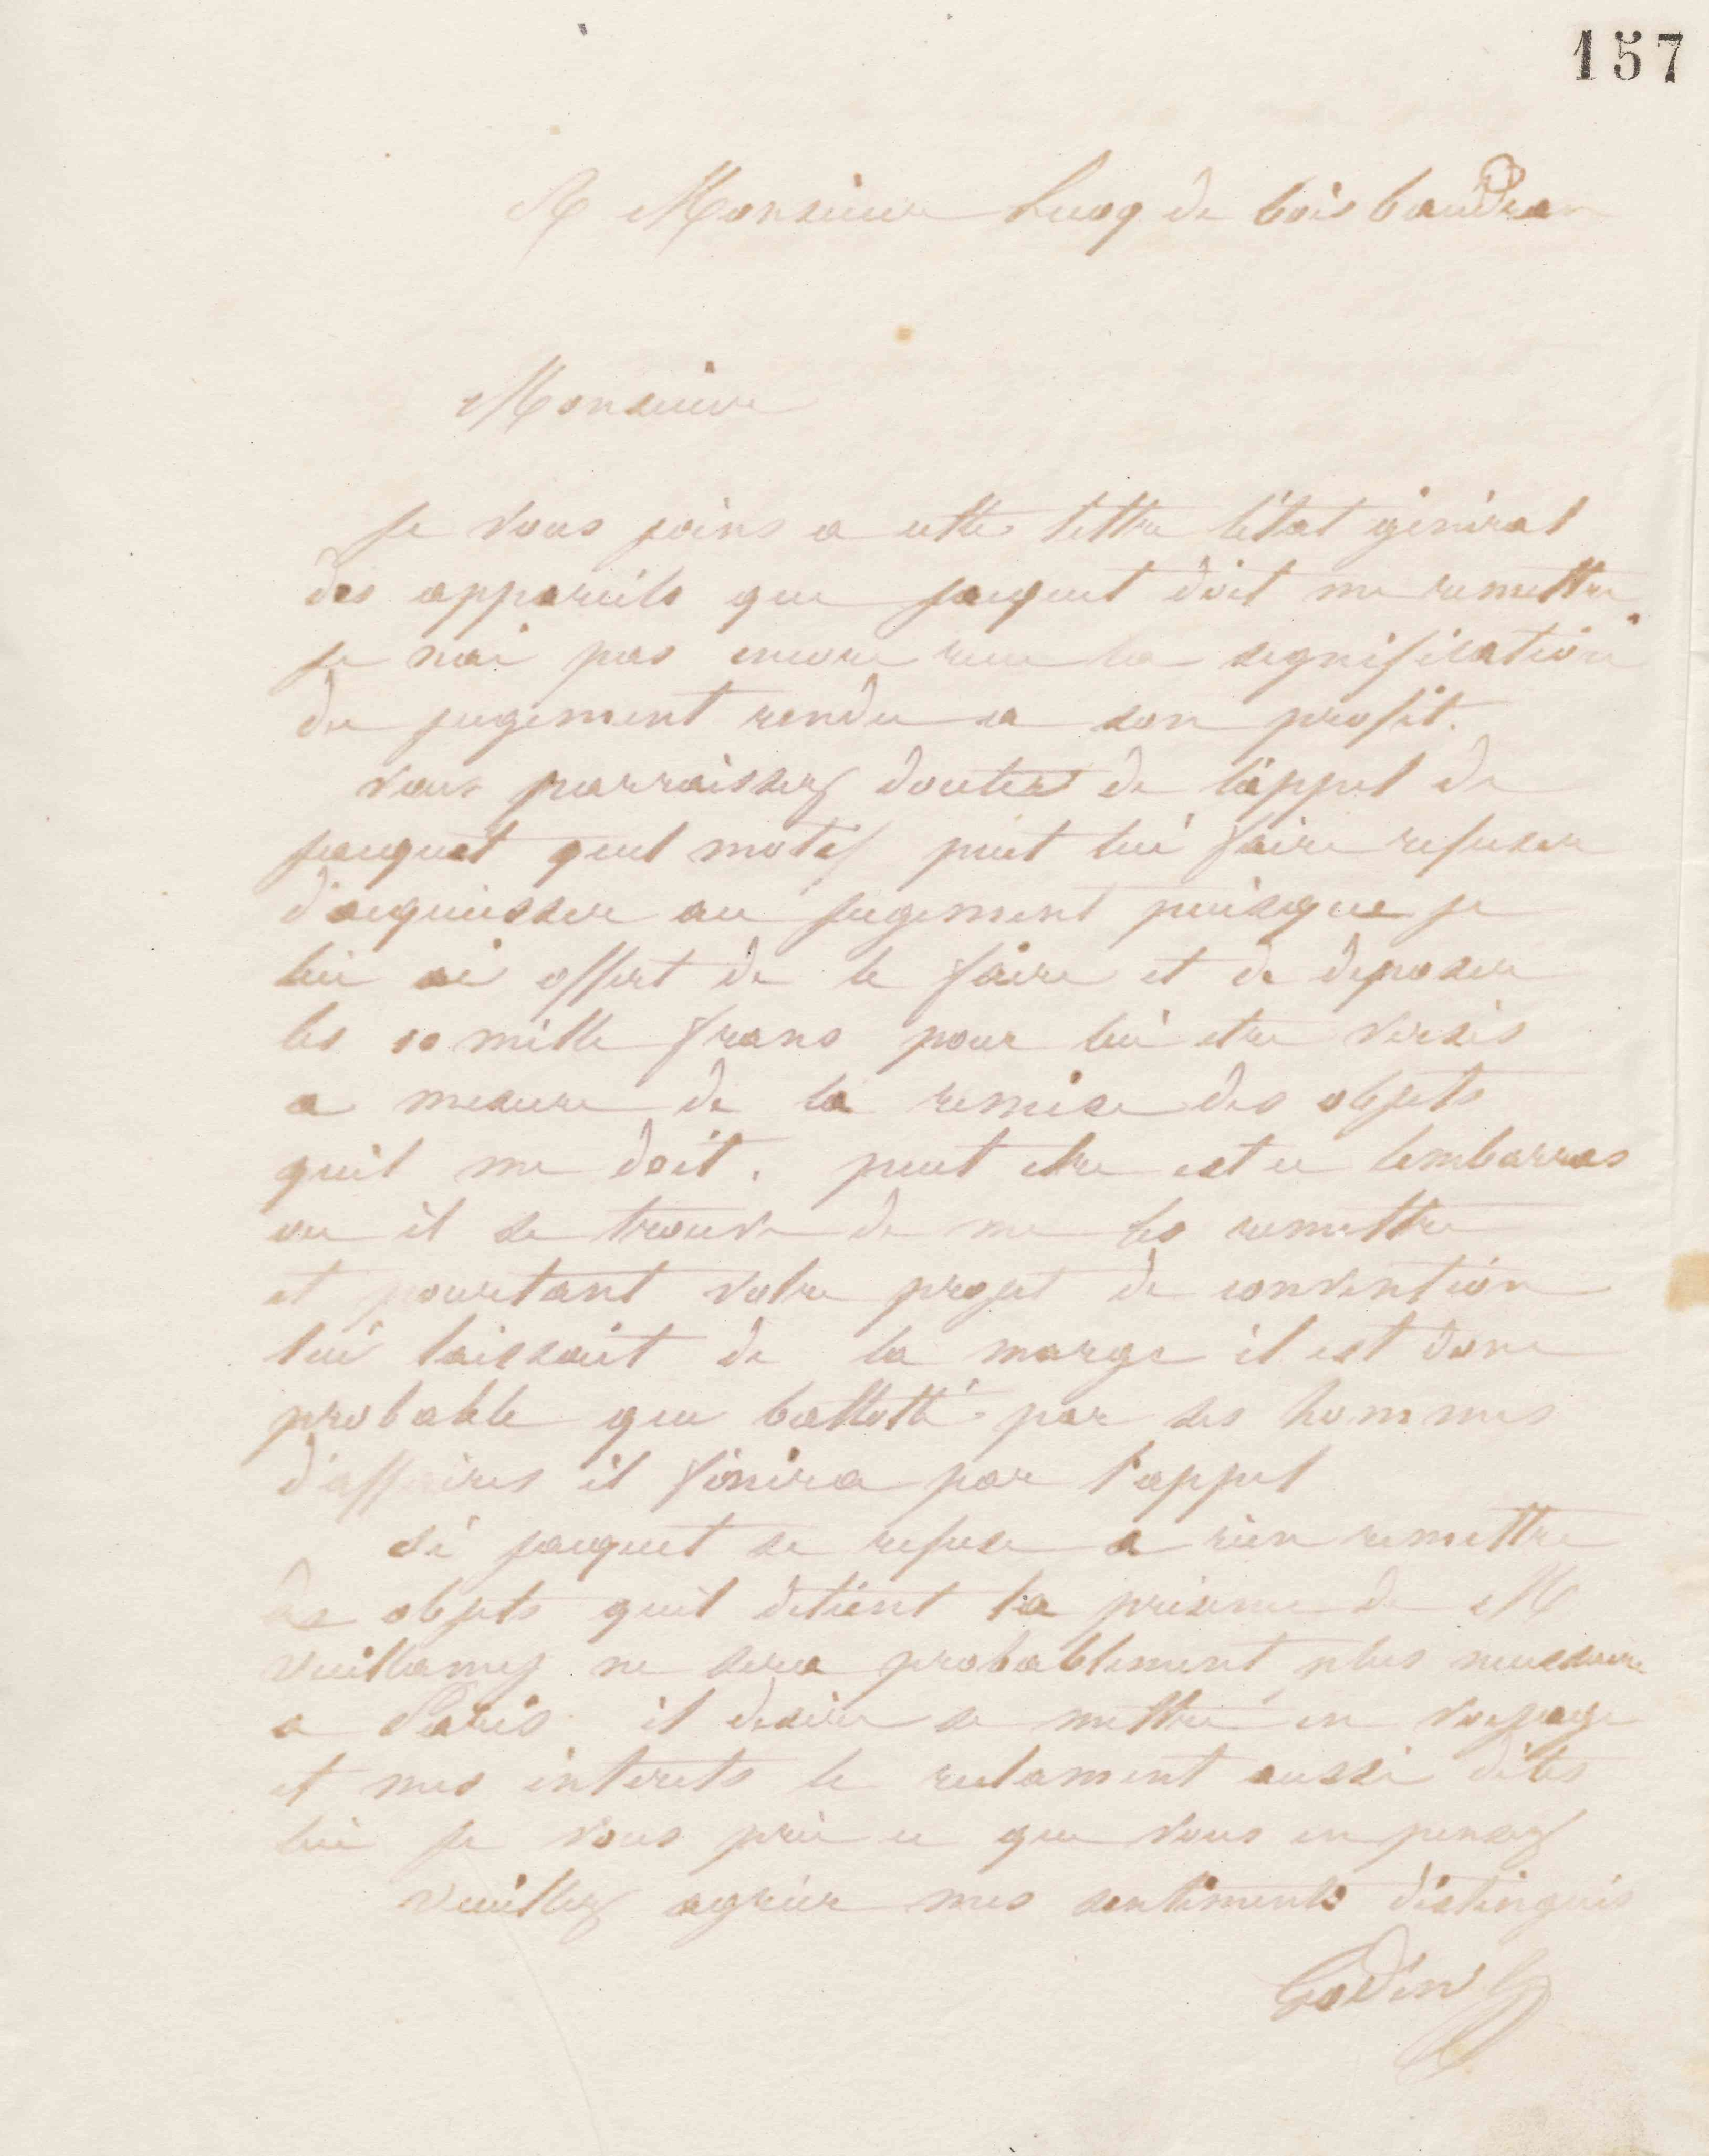 157
A Monsieur Lucq de bois baudran
Monsieur
Je vous joins a cette lettre l'état général
des appareils que jacquet doit me remettre.
je nai pas encore recu la signification
du jugement rendu a son profit.
vous parraissez douter de l'appel de
jacquet quel motif peut lui faire refuser
d'acquiesser au jugement puisque je
lui ai offert de le faire et de deposer
les 10 mille frans pour lui etre versés
a mesure de la remise des objets
quil me doit. peut etre est ce lembarras
ou il se trouve de me les remettre
et pourtant votre projet de convention
lui laissait de la marge il est donc
probable que ballotté par ses hommes
d'affaires il finira par l'appel
si jacquet se refuse a rien remettre
des objets quil detient la présence de M
Vuillamy ne sera probablement plus necessaire
a Paris il desire se mettre en voyage
et mes interets le reclament aussi dites
lui je vous prie ce que vous en pensez
veuillez agréer mes sentiments distingués
Godin